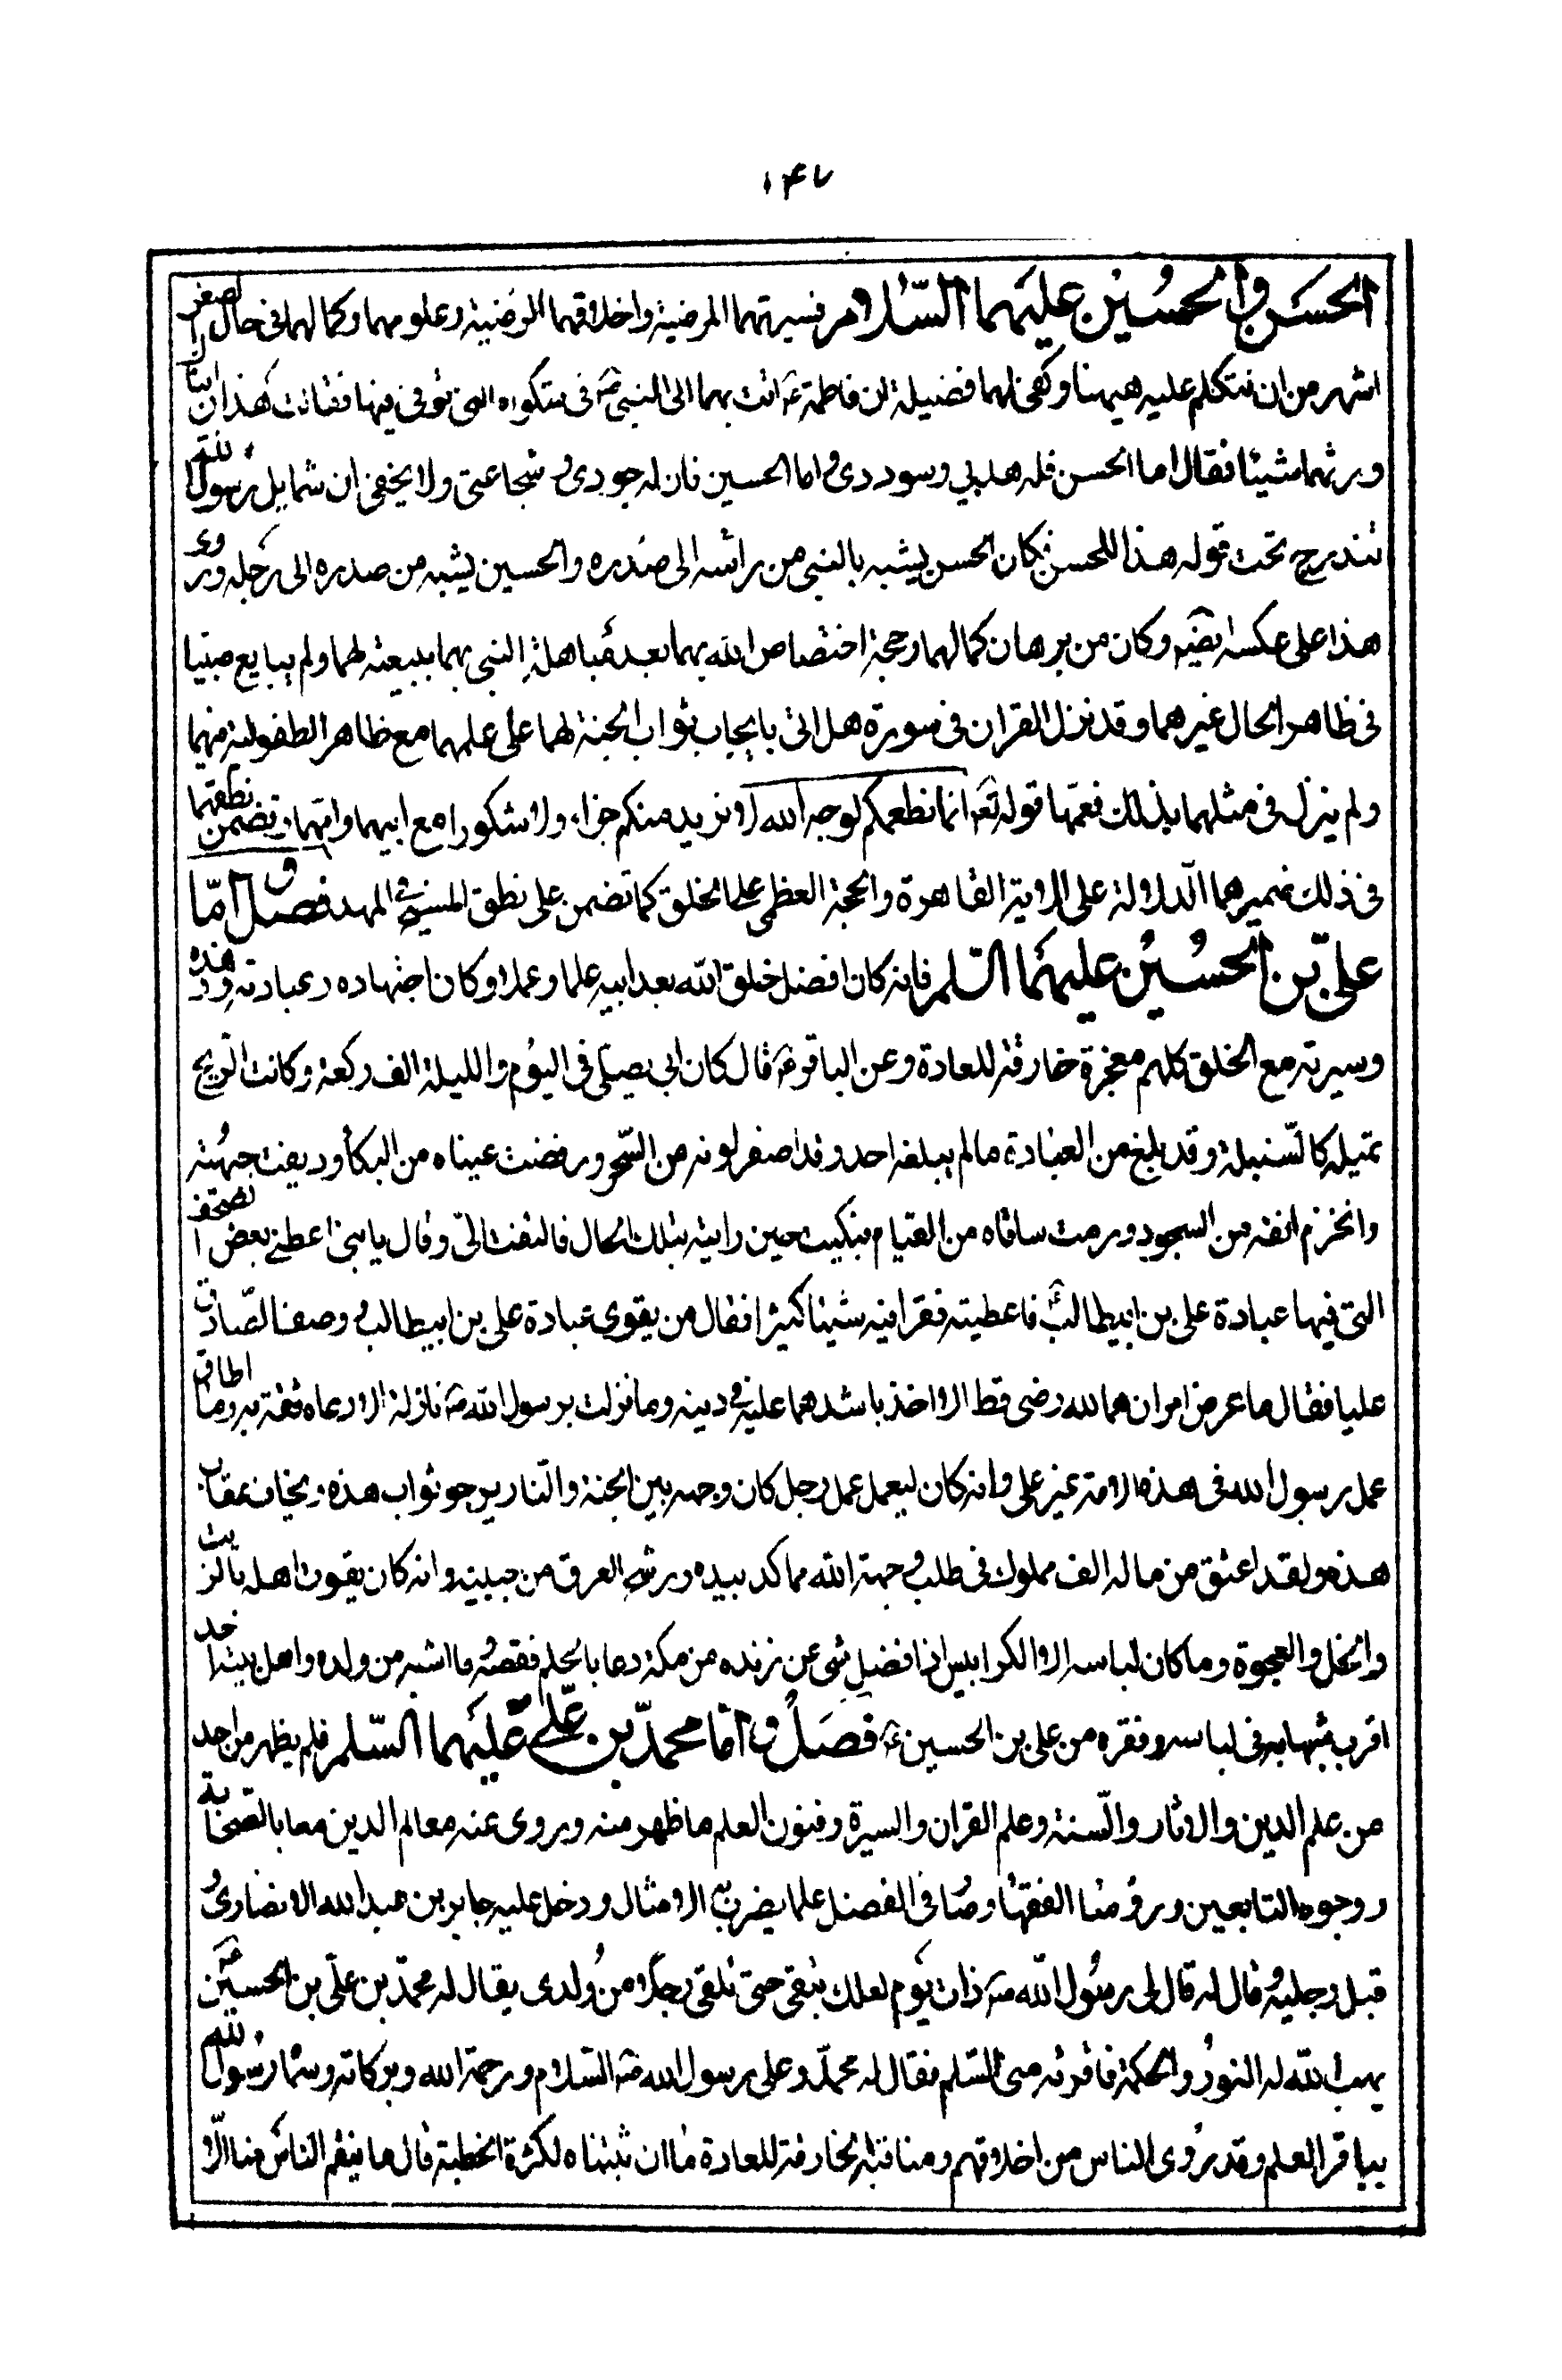 ١٤٧
الحسن والحسين عليهما السلام فسيرتهما المرضية واخلاقهما الرضية وعلومهما وكمالهما فى حال الصغر
اشهر من ان نتكلم عليه هيهنا وكفى لهما فضيلة ان فاطمة ع اتت بهما الى النبى ص فى شكواه التى توفى فيها فقالت هذان ابناك
ورثهما شيئا فقال اما الحسن فله هديى وسوددى واما الحسين فان له جودى وشجاعتى ولا يخفى ان شمايل رسول الله
تندرج تحت قوله هذا للحسن فكان الحسن يشبه بالنبى من راسه الى صدره والحسين يشبه من صدره الى رجله وروى
هذا على عكسه ايضا وكان من برهان كمالهما وحجة اختصاص الله بهما بعد مباهلة النبى بهما ببيعته لهما ولم يبايع صبيا
فى ظاهر الحال غيرهما وقد نزل القران فى سورة هل اتى بايجاب ثواب الجنة لهما على علمهما مع ظاهر الطفولية منهما
ولم ينزل فى مثلهما بذلك فعمهما قوله تع انما نطعمكم لوجه الله لا نريد منكم جزاء ولا شكورا مع ابيهما وامهما وتضمن نطقهما
فى ذلك ضميرهما الدلالة على الاية القاهرة والحجة العظمى على الخلق كما تضمن على نطق المسيح فى المهد فصل واما
على بن الحسين عليهما السلم فانه كان افضل خلق الله بعد ابيه علما وعملا وكان اجتهاده وعبادته وزهده
وسيرته مع الخلق كلهم معجزة خارقة للعادة وعن الباقر ع قال كان ابى يصلى فى اليوم والليلة الف ركعة وكانت الريح
تميله كالسنبلة وقد بلغ من العبادة ما لم يبلغه احد وقد اصفر لونه من السحر ورمضت عيناه من البكأ ودبغت جبهته
وانخرم انفه من السجود ورمت ساقاه من القيام فبكيت حين رايته بتلك الحال فالتفت الى وقال يا بنى اعطنى بعض الصحف
التى فيها عبادة على بن ابيطالب ع فاعطيته فقرا فيه شيئا كثيرا فقال من يقوى عبادة على بن ابيطالب ووصف الصادق
عليا فقال ما عرض امران هما لله رضى قط الا واخذ باشدهما عليه فى دينه وما نزلت برسول الله ص نازلة الا دعاه ثقة به وما اطاق
عمل رسول الله فى هذه الامة غير على وانه كان ليعمل عمل رجل كان وجهه بين الجنة والنار يرجو ثواب هذه ويخاف عقاب
هذه ولقد اعتق من ماله الف مملوك فى طلب وجهة الله مما كد بيده ورشح العرق من جبينه وانه كان يقوت اهله بالزيت
والخل والعجوة وما كان لباسه الا الكرابيس اذا افضل شى عن زنده من مكة دعا بالجلم فقصه وما اشبه من ولده واهل بيته احد
اقرب شبها به فى لباسه وفقره من على بن الحسين ع فصل واما محمد بن على عليهما السلم فلم يظهر من احد
من علم الدين والاثار والسنة وعلم القران والسيرة وفنون العلم ما ظهر منه وروى عنه معالم الدين معا بالصحابة
ووجوه التابعين ورؤسا الفقها وصار فى الفضل علما يضرب به الامثال ودخل عليه جابر بن عبد الله الانصارى و
قبل رجليه وقال له قال لى رسول الله ص ذات يوم لعلك تبقى حتى تلقى رجلا من ولدى يقال له محمد بن على بن الحسين ع
يهب الله له النور والحكمة فاقرئه منى السلم فقال له محمد وعلى رسول الله ص السلام ورحمة الله وبركاته وسماه رسول الله
بباقر العلم وقد روى الناس من اخلاقهم ومناقبهم الخارقة للعادة ما ان ثبتناه لكثرة الخطبة قال ما ينقم الناس منا الا